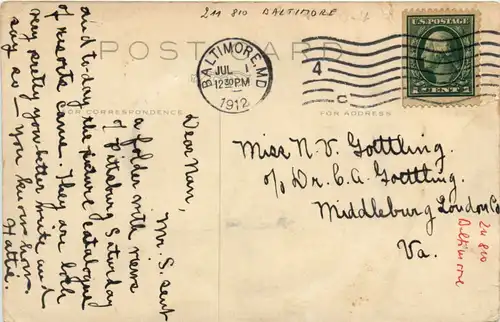 211 810 BALTIMORE
POST CARD
FOR CORRESPONDENCE
FOR ADDRESS
BALTIMORE, MD.
JUL 1
12 30 PM
1912
4
C
U.S. POSTAGE
1 CENT 1
Dear Nan,
Mr. S. sent
a folder with views
of Pittsburg Saturday
and to-day the picture catalogue
of resorts came. They are both
very pretty you better write and
say so - you know how.
Hattie.
Miss N. V. Gottling.
c/o Dr. C. A. Gottling.
Middleburg Loudon Co
Va.
211 810
Baltimore